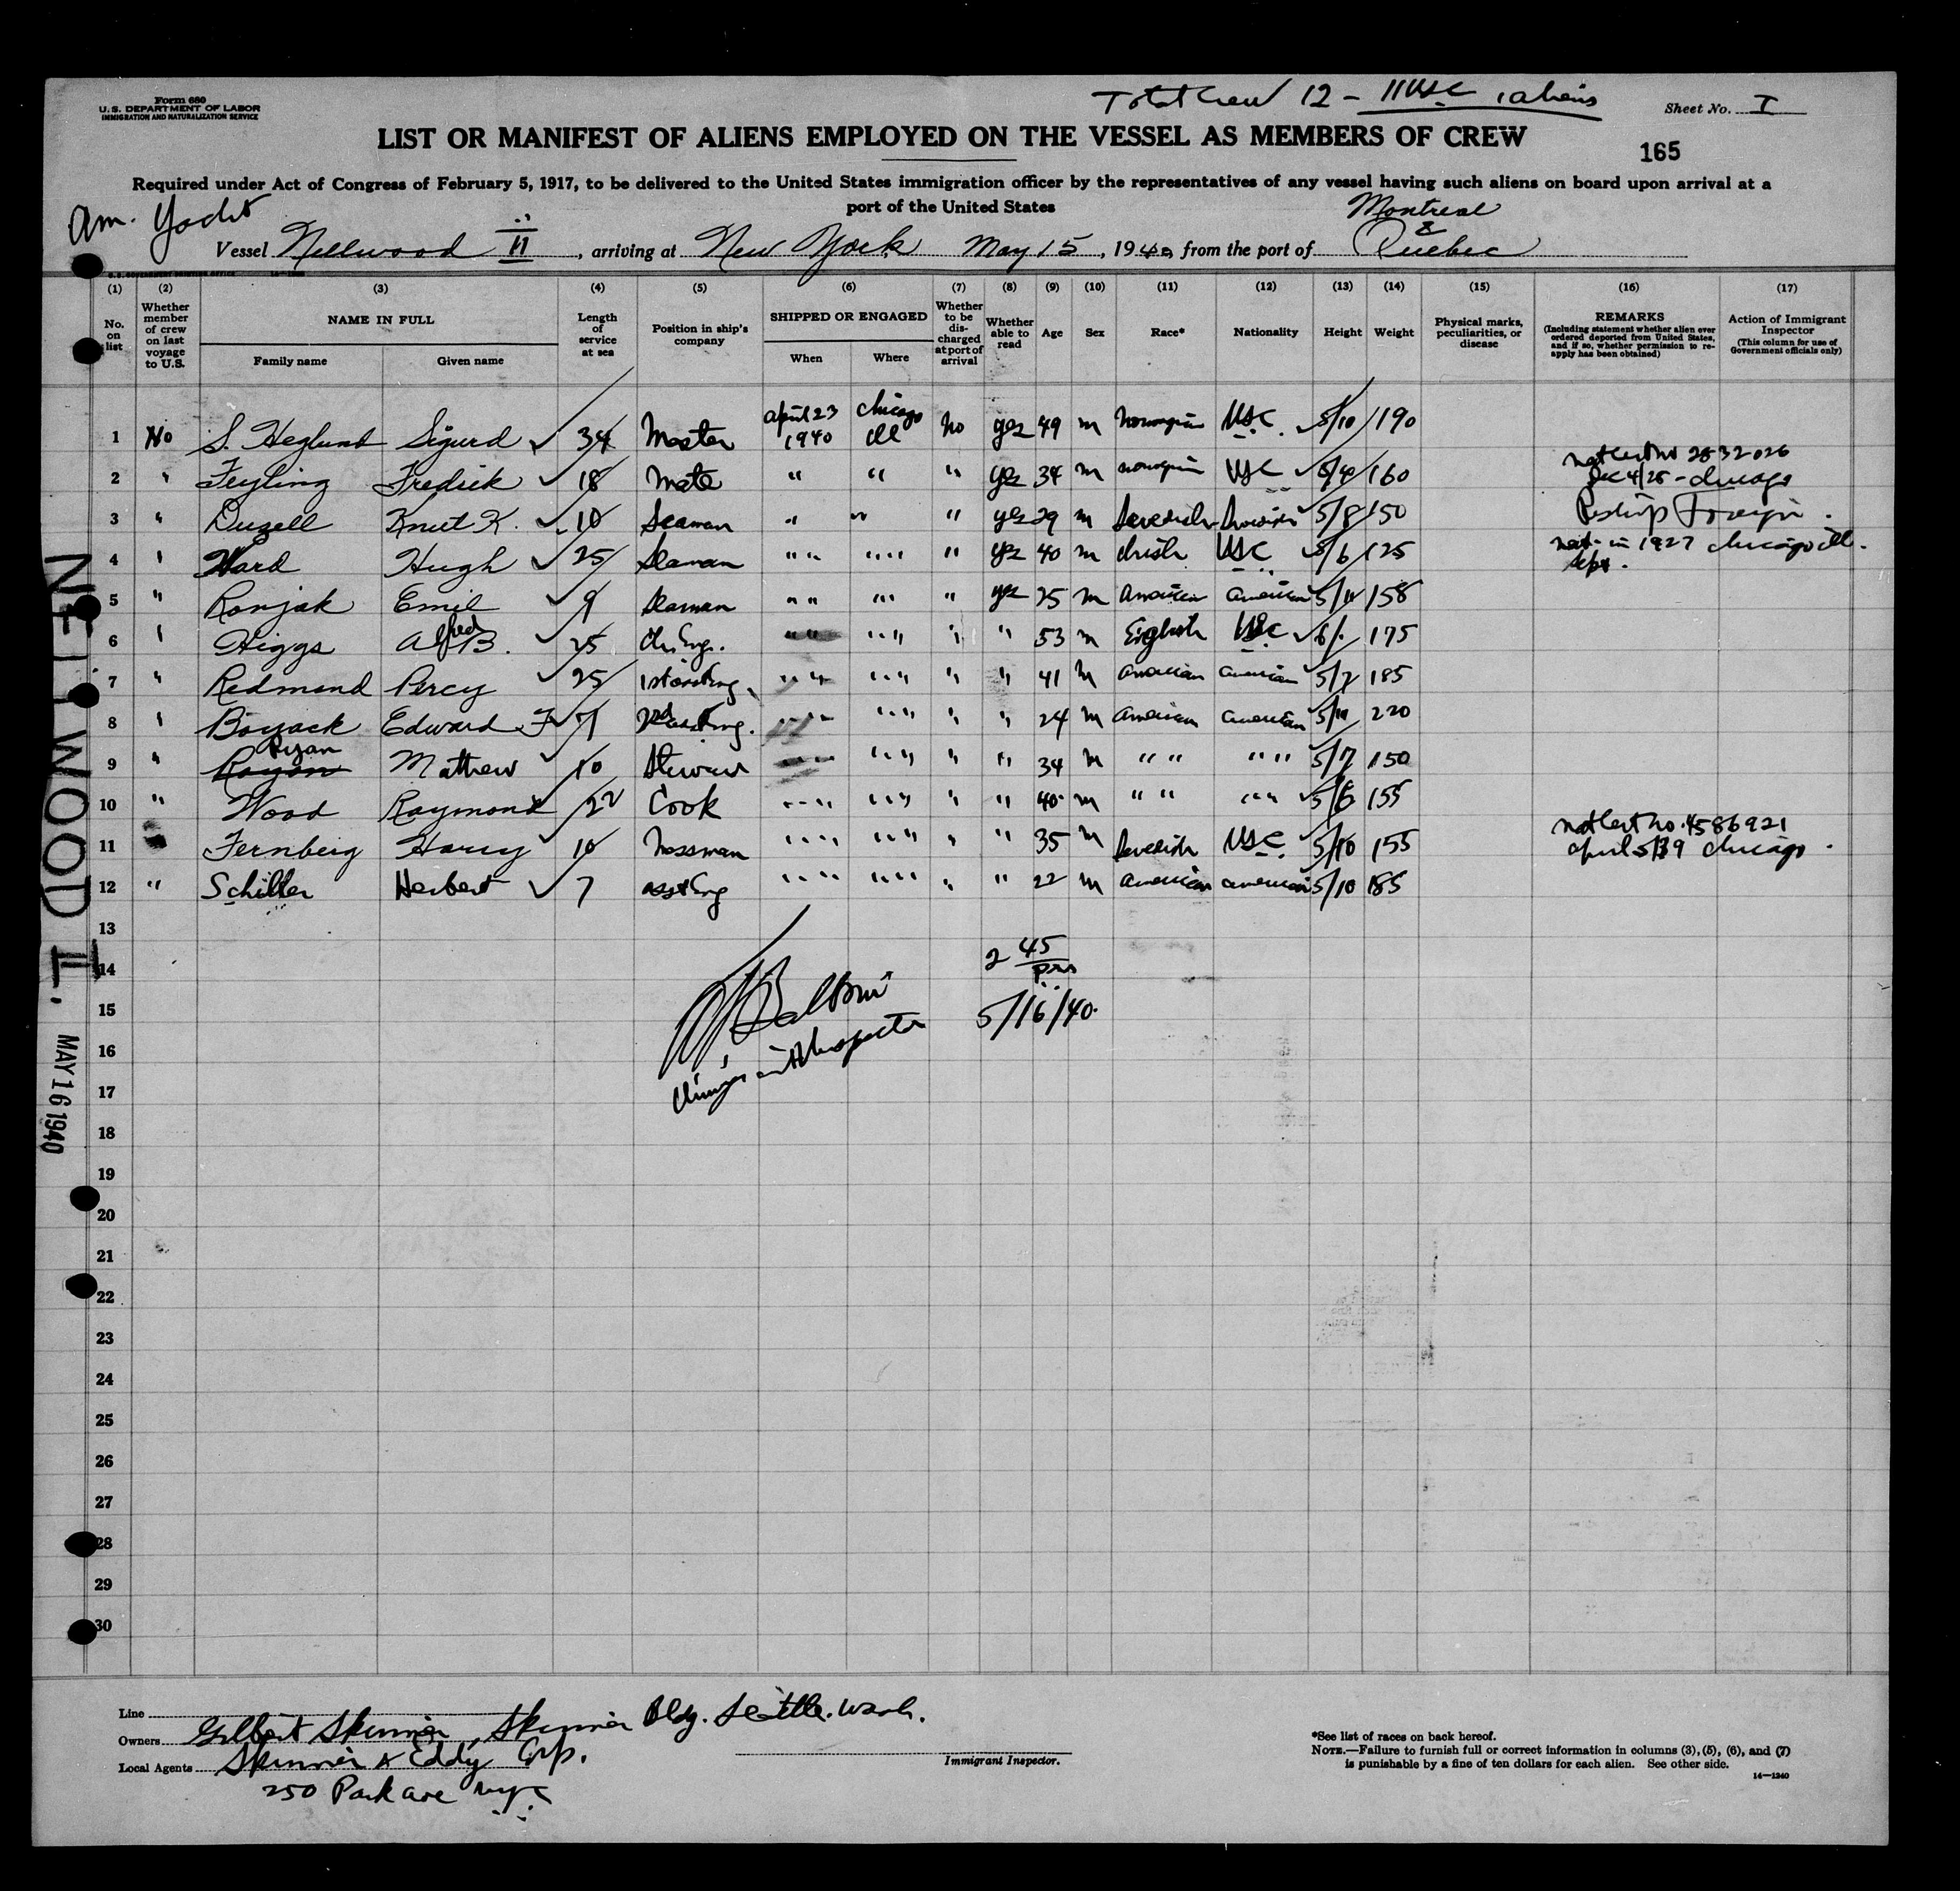 Form 680
U.S. DEPARTMENT OF LABOR
IMMIGRATION AND NATURALIZATION SERVICE
Total Crew 12 - 11 USC 1 aliens
Sheet No. I
LIST OR MANIFEST OF ALIENS EMPLOYED ON THE VESSEL AS MEMBERS OF CREW
165
Required under Act of Congress of February 5, 1917, to be delivered to the United States immigration officer by the representatives of any vessel having such aliens on board upon arrival at a
port of the United States
Am. Yacht
Montreal
&
Vessel Nellwood II, arriving at New York May 15, 1940, from the port of Quebec
(1) (2) (3) (4) (5) (6) (7) (8) (9) (10) (11) (12) (13) (14) (15) (16) (17)
No. on list
Whether member of crew on last voyage to U.S.
NAME IN FULL
Family name Given name
Length of service at sea
Position in ship's company
SHIPPED OR ENGAGED
When Where
Whether to be discharged at port of arrival
Whether able to read
Age
Sex
Race*
Nationality
Height
Weight
Physical marks, peculiarities, or disease
REMARKS
(Including statement whether alien ever ordered deported from United States, and if so, whether permission to reapply has been obtained)
Action of Immigrant Inspector
(This column for use of Government officials only)
1 No S. Heglund Sigurd 34 Master april 23 1940 Chicago Ill No yes 49 m Norwegian USC 5/10 190
2 " Feyling Fredick 18 Mate " " " yes 34 m norwegian USC 5/4 160 Nat Cert No 2832026 Dec 4/28 - Chicago
3 " Duzell Knut K. 10 Seaman " " " yes 29 m Swedish Swedish 5/8 150 Reship Foreign.
4 " Ward Hugh 25 Seaman " " " " " yes 40 m Irish USC 5/6 125 nat - in 1927 Chicago Ill. Sept.
5 " Ronjak Emil 9 Seaman " " " " " yes 25 m American American 5/11 158
6 " Higgs Alfred B. 25 Ch. Eng. " " " " " " 53 m English USC 6/. 175
7 " Redmond Percy 25 1st asst Eng. " " " " " " 41 m American American 5/7 185
8 " Boyack Edward F 7 2nd asst Eng. " " " " " " 24 m American American 5/11 220
9 " Ryan Mathew 10 Steward " " " " " " 34 m " " " " 5/7 150
10 " Wood Raymond 22 Cook " " " " " " 40 m " " " " 5/6 155
11 Fernberg Harry 10 Messman " " " " " " 35 m Swedish USC 5/10 155 Nat Cert No. 4586921 April 5/39 Chicago.
12 " Schiller Herbert 7 asst Eng " " " " " " 22 m American American 5/10 185
13
14
15
16
17
18
19
20
21
22
23
24
25
26
27
28
29
30
2 45
pm
5/16/40.
NELLWOOD II.
MAY 16 1940
Line
Owners Gilbert Skinner, Skinner Bldg. Seattle. Wash.
Local Agents Skinner & Eddy Corp.
250 Park ave nyc
Immigrant Inspector.
*See list of races on back hereof.
NOTE.—Failure to furnish full or correct information in columns (3), (5), (6), and (7)
is punishable by a fine of ten dollars for each alien. See other side.
14—1240